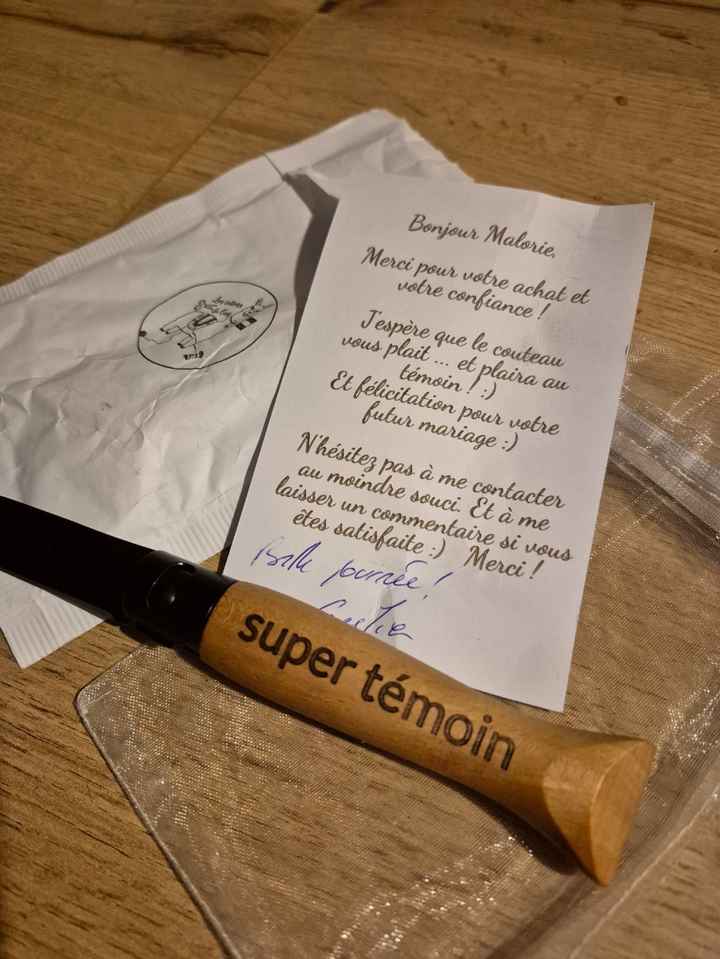 Bonjour Malorie,
Merci pour votre achat et
votre confiance !
J'espère que le couteau
vous plait ... et plaira au
témoin ! :)
Et félicitation pour votre
futur mariage :)
N'hésitez pas à me contacter
au moindre souci. Et à me
laisser un commentaire si vous
êtes satisfaite :) Merci !
Belle journée !
super témoin